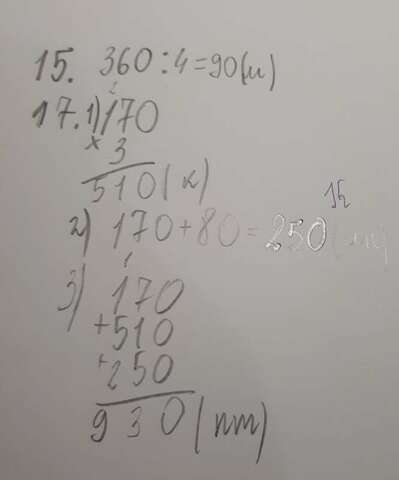 15. 360:4=90(м)
2
17. 1) 170
× 3
510(к)
15
2) 170+80=250
1
3) 170
+510
+250
930(пт)